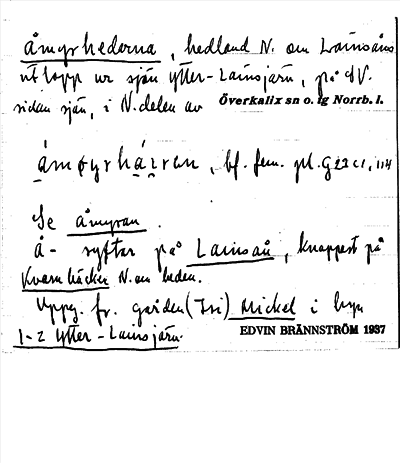 åmyrhedarna, hedland N. om Lainsåns
utlopp ur sjön Ytter-Lainsjärv, på V.
sidan sjön, i N. delen av Överkalix sn o. tg Norrb. l.
bf. fem. pl.
Se åmyran.
å- syftar på Lainsån, knappast på
Kvarnbäcken N. om heden.
Uppg. fr. gården (Isi) Mickel i byn
1-2 Ytter-Lainsjärv.
EDVIN BRÄNNSTRÖM 1937